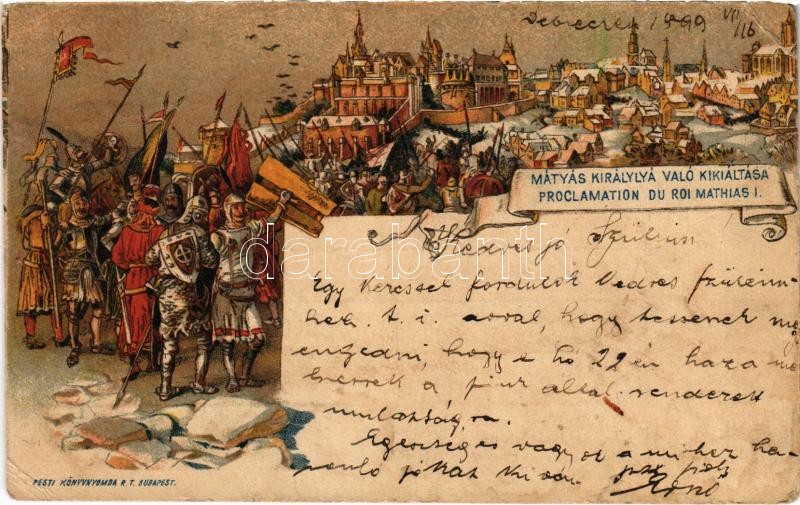 Debreczen 1899 VII/16
MÁTYÁS KIRÁLYLYÁ VALÓ KIKIÁLTÁSA
PROCLAMATION DU ROI MATHIAS I.
Kedves jó Szüleim
Egy kéréssel fordulok kedves szüleim-
hek. t. i. avval, hogy tessenek meg
engedni, hogy e hó 22 én haza me
hessek a által rendezett
mulatságra.
Egészséges vagyok a mihez ha-
sonló jókat kíván.
darabanth
PESTI KÖNYVNYOMDA R. T. BUDAPEST.